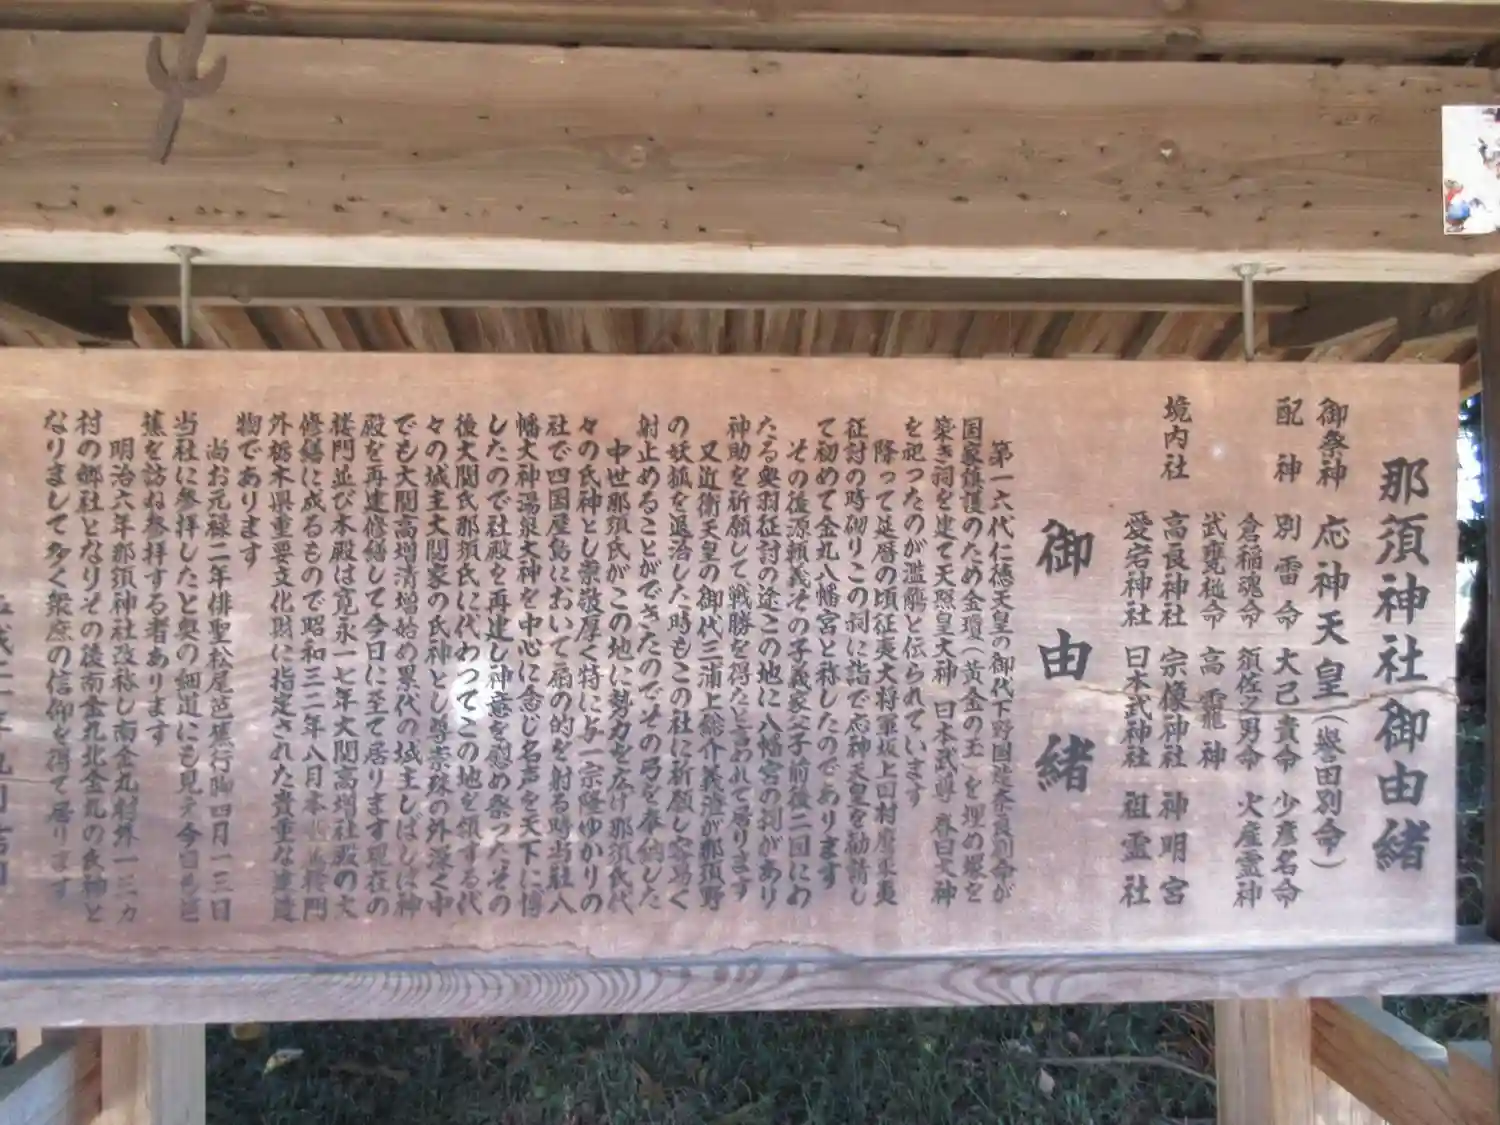 那須神社御由緒
御祭神 応神天皇（誉田別命）
配神 別雷命 大己貴命 少彦名命
倉稲魂命 須佐之男命 火産霊神
武甕槌命 高龗神
境内社 高良神社 宗像神社 神明宮
愛宕神社 日本武神社 祖霊社
御由緒
第一六代仁徳天皇の御代下野国造奈良別命が
国家鎮護のため金瓊（黄金の玉）を埋め塚を
築き祠を建て天照皇大神 日本武尊 春日大神
を祀ったのが濫觴と伝られています
降って延暦の頃征夷大将軍坂上田村麿東夷
征討の時砌りこの祠に詣で応神天皇を勧請し
て初めて金丸八幡宮と称したのであります
その後源頼義その子義家父子前後二回にわ
たる奥羽征討の途この地に八幡宮の祠があり
神助を祈願して戦勝を得たと言われて居ります
又近衛天皇の御代三浦上総介義澄が那須野
の妖狐を退治した時もこの社に祈願し容易く
射止めることができたのでその弓を奉納した
中世那須氏がこの地に勢力を広げ那須氏代
々の氏神とし崇敬厚く特に与一宗隆ゆかりの
社で四国屋島において扇の的を射る時当社八
幡大神湯泉大神を中心に念じ名声を天下に博
したので社殿を再建し神意を慰め祭ったその
後大関氏那須氏に代わってこの地を領する代
々の城主大関家の氏神とし尊崇殊の外深く中
でも大関高増清増始め累代の城主しばしば神
殿を再建修繕して今日に至て居ります現在の
楼門並び本殿は寛永一七年大関高増社殿の大
修繕に成るもので昭和三二年八月本殿並楼門
外栃木県重要文化財に指定された貴重な建造
物であります
尚お元禄二年俳聖松尾芭蕉行脚四月一三日
当社に参拝したと奥の細道にも見ヲ今日も芭
蕉を訪ね参拝する者あります
明治六年那須神社改称し南金丸村外一三カ
村の郷社となりその後南金丸北金丸の氏神と
なりまして多く衆庶の信仰を得て居ります